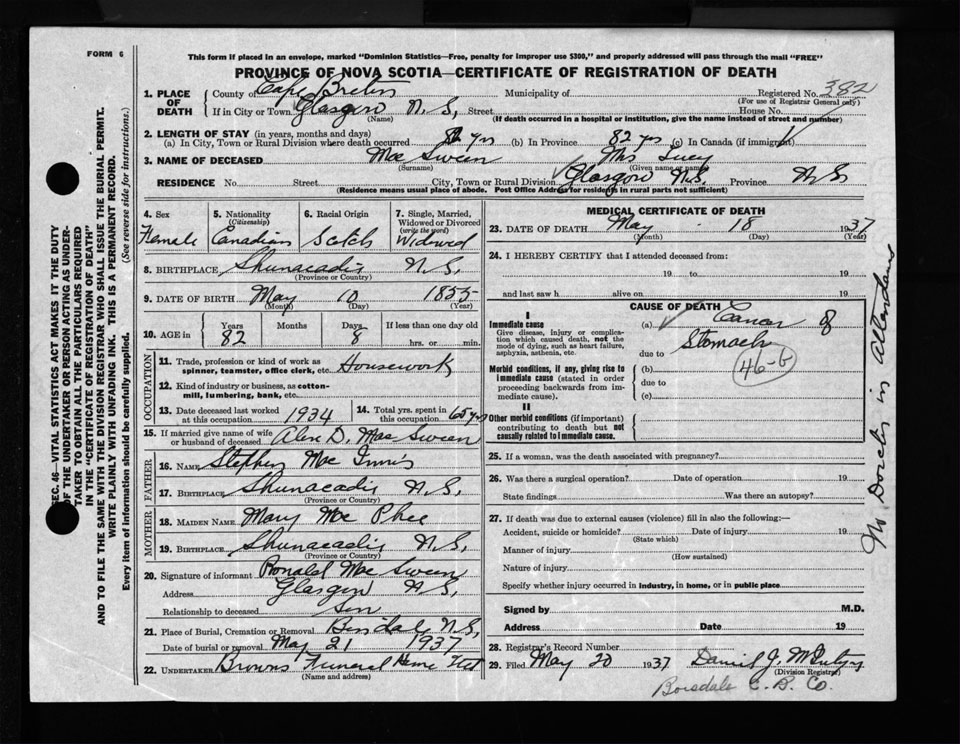 FORM 6
This form if placed in an envelope, marked "Dominion Statistics—Free, penalty for improper use $300," and properly addressed will pass through the mail "FREE"
PROVINCE OF NOVA SCOTIA—CERTIFICATE OF REGISTRATION OF DEATH
1. PLACE OF DEATH County of Cape Breton Municipality of Registered No. 382
(For use of Registrar General only)
If in City or Town Glasgow N. S, Street House No.
(Name) (If death occurred in a hospital or institution, give the name instead of street and number)
2. LENGTH OF STAY (in years, months and days)
(a) In City, Town or Rural Division where death occurred 82 yrs (b) In Province 82 yrs (c) In Canada (if immigrant)
3. NAME OF DECEASED Mac Sween Mrs Lucy
(Surname) (Given name or names)
RESIDENCE No. Street City, Town or Rural Division Glasgow N.S. Province N S
(Residence means usual place of abode. Post Office Address for residents in rural parts not sufficient)
4. Sex Female
5. Nationality (Citizenship) Canadian
6. Racial Origin Scotch
7. Single, Married, Widowed or Divorced (write the word) Widowed
8. BIRTHPLACE Shunacadie N.S,
(Province or Country)
9. DATE OF BIRTH May 10 1855
(Month) (Day) (Year)
10. AGE in Years 82 Months Days 8 If less than one day old hrs. or min.
OCCUPATION
11. Trade, profession or kind of work as spinner, teamster, office clerk, etc. Housework
12. Kind of industry or business, as cotton-mill, lumbering, bank, etc.
13. Date deceased last worked at this occupation 1934
14. Total yrs. spent in this occupation 65 yrs
15. If married give name of wife or husband of deceased Alex D. Mac Sween
FATHER
16. NAME Stephen Mac Innis
17. BIRTHPLACE Shunacadie N.S,
(Province or Country)
MOTHER
18. MAIDEN NAME Mary Mac Phee
19. BIRTHPLACE Shunacadie N.S,
(Province or Country)
20. Signature of informant Ronald Mac Sween
Address Glasgow N.S,
Relationship to deceased Son
21. Place of Burial, Cremation or Removal N.S,
Date of burial or removal May 21 1937
22. UNDERTAKER Browns Funeral Home
(Name and address)
MEDICAL CERTIFICATE OF DEATH
23. DATE OF DEATH May 18 1937
(Month) (Day) (Year)
24. I HEREBY CERTIFY that I attended deceased from:
19 to 19
and last saw h alive on 19
CAUSE OF DEATH
I
Immediate cause
Give disease, injury or complication which caused death, not the mode of dying, such as heart failure, asphyxia, asthenia, etc.
(a) Cancer of
Stomach
due to
Morbid conditions, if any, giving rise to immediate cause (stated in order proceeding backwards from immediate cause).
(b)
46-b
due to
(c)
II
Other morbid conditions (if important) contributing to death but not causally related to immediate cause.
25. If a woman, was the death associated with pregnancy?
26. Was there a surgical operation? Date of operation 19
State findings Was there an autopsy?
27. If death was due to external causes (violence) fill in also the following:—
Accident, suicide or homicide? Date of injury 19
(State which)
Manner of injury
(How sustained)
Nature of injury
Specify whether injury occurred in industry, in home, or in public place
Signed by M.D.
Address Date 19
28. Registrar's Record Number
29. Filed May 20 1937 Daniel J. McIntyre
(Division Registrar)
Boisdale C. B. Co.
No Doctor in Attendance
SEC. 46—VITAL STATISTICS ACT MAKES IT THE DUTY
OF THE UNDERTAKER OR PERSON ACTING AS UNDER-
TAKER TO OBTAIN ALL THE PARTICULARS REQUIRED
IN THE "CERTIFICATE OF REGISTRATION OF DEATH"
AND TO FILE THE SAME WITH THE DIVISION REGISTRAR WHO SHALL ISSUE THE BURIAL PERMIT.
WRITE PLAINLY WITH UNFADING INK. THIS IS A PERMANENT RECORD.
Every item of information should be carefully supplied. (See reverse side for instructions.)